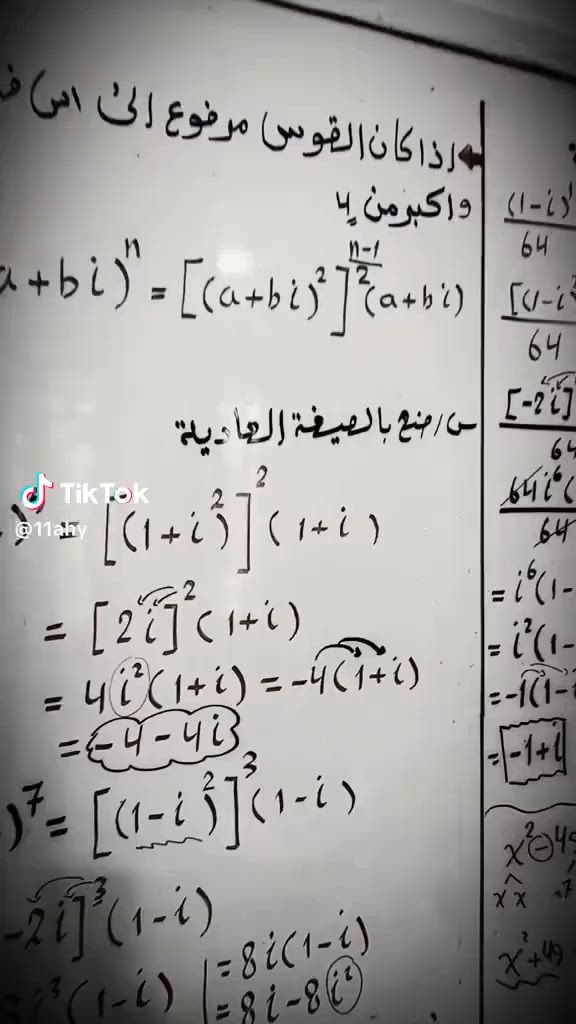 اذا كان القوس مرفوع إلى اس
واكبر من 4
a+bi)ⁿ = [(a+bi)²]^((n-1)/2) (a+bi)
س/ ضع بالصيغة العادية
TikTok
@11ahy
= [(1+i)²]² (1+i)
= [2i]² (1+i)
= 4i²(1+i) = -4(1+i)
= -4-4i
)⁷ = [(1-i)²]³ (1-i)
-2i]³ (1-i)
i³(1-i)
= 8i(1-i)
= 8i-8i²
(1-i)
64
[(1-i
64
[-2i]
64
64i⁶(
64
= i⁶(1-
= i²(1-
= -1(1-i
= -1+i
x²-49
x x 7
x²+49